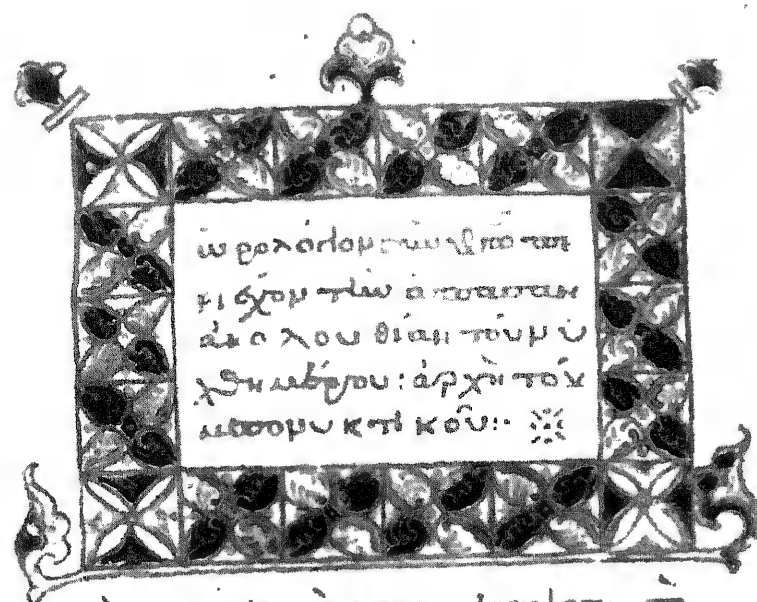 ὡρολόγιον σὺν
ριέχον τὴν ἅπασαν
ἀκολουθίαν τοῦ νυ
χθημέρου: ἀρχὴ τοῦ
μεσονυκτικοῦ:·